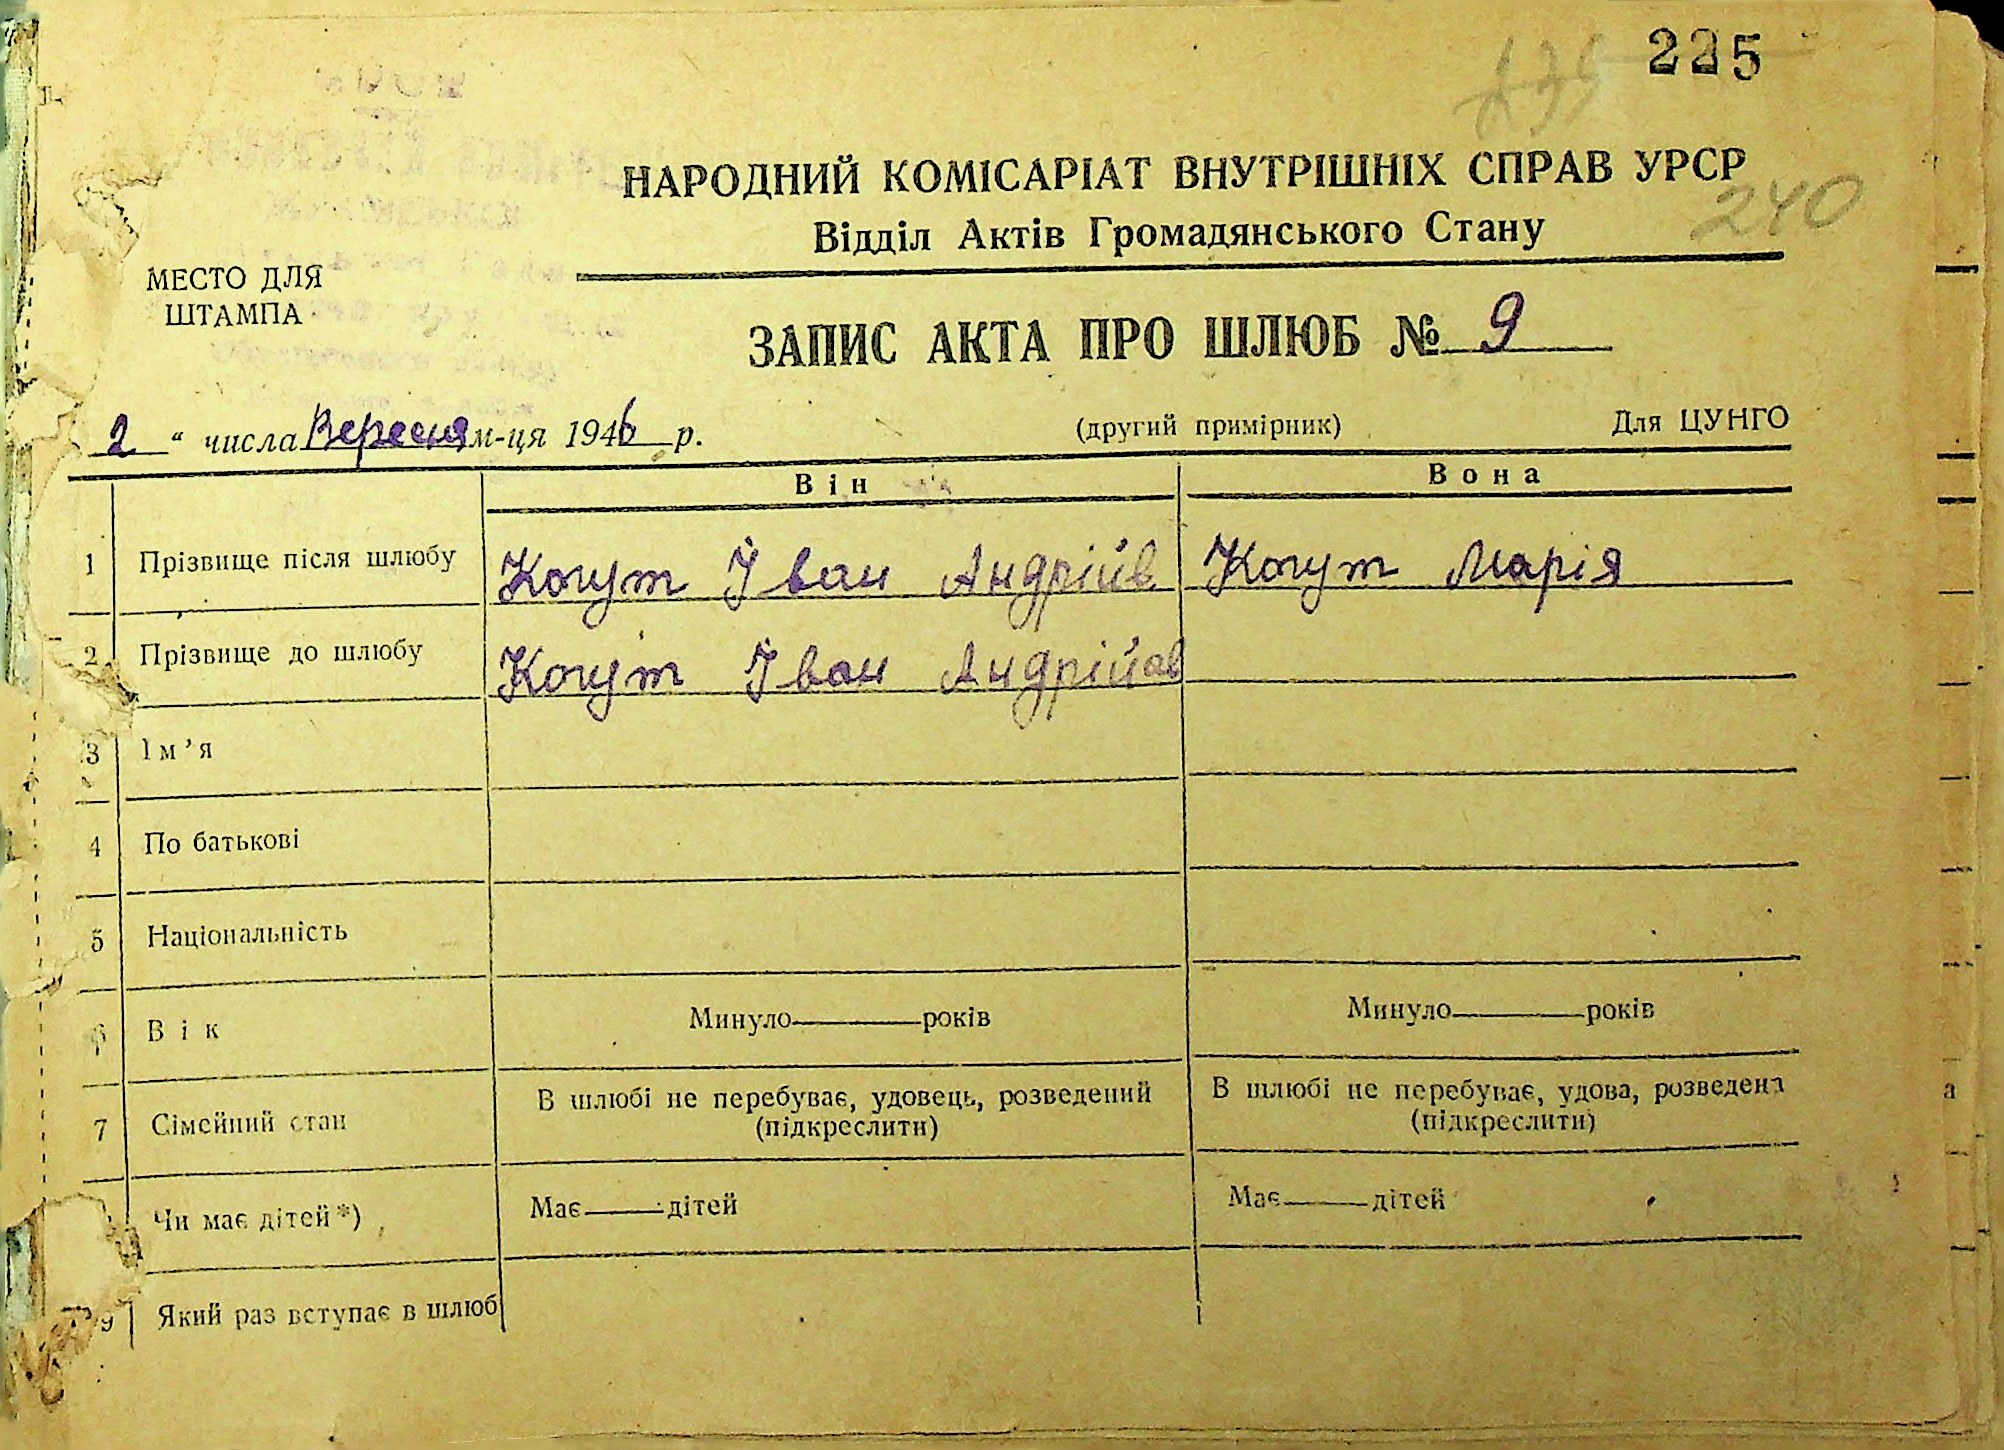 225
235
НАРОДНИЙ КОМІСАРІАТ ВНУТРІШНІХ СПРАВ УРСР
240
Відділ Актів Громадянського Стану
МЕСТО ДЛЯ
ШТАМПА
ЗАПИС АКТА ПРО ШЛЮБ № 9
2 “ числа Вересня м-ця 1946 р. (другий примірник) Для ЦУНГО
Він Вона
1 Прізвище після шлюбу Когут Іван Андрійв Когут Марія
2 Прізвище до шлюбу Когут Іван Андрійов
3 Ім’я
4 По батькові
5 Національність
6 Вік Минуло років Минуло років
7 Сімейний стан В шлюбі не перебуває, удовець, розведений (підкреслити) В шлюбі не перебуває, удова, розведена (підкреслити)
Чи має дітей*) Має дітей Має дітей
9 Який раз вступає в шлюб